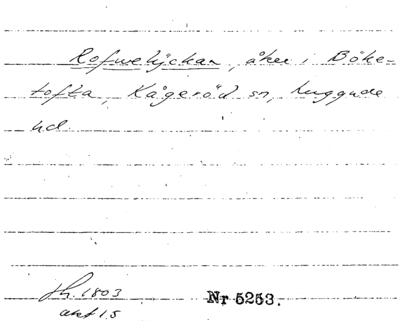 Rofwelyckan, åker i Böke-
tofta, Kågeröd sn, Luggude
hd
1803
akt 15
Nr 5253.